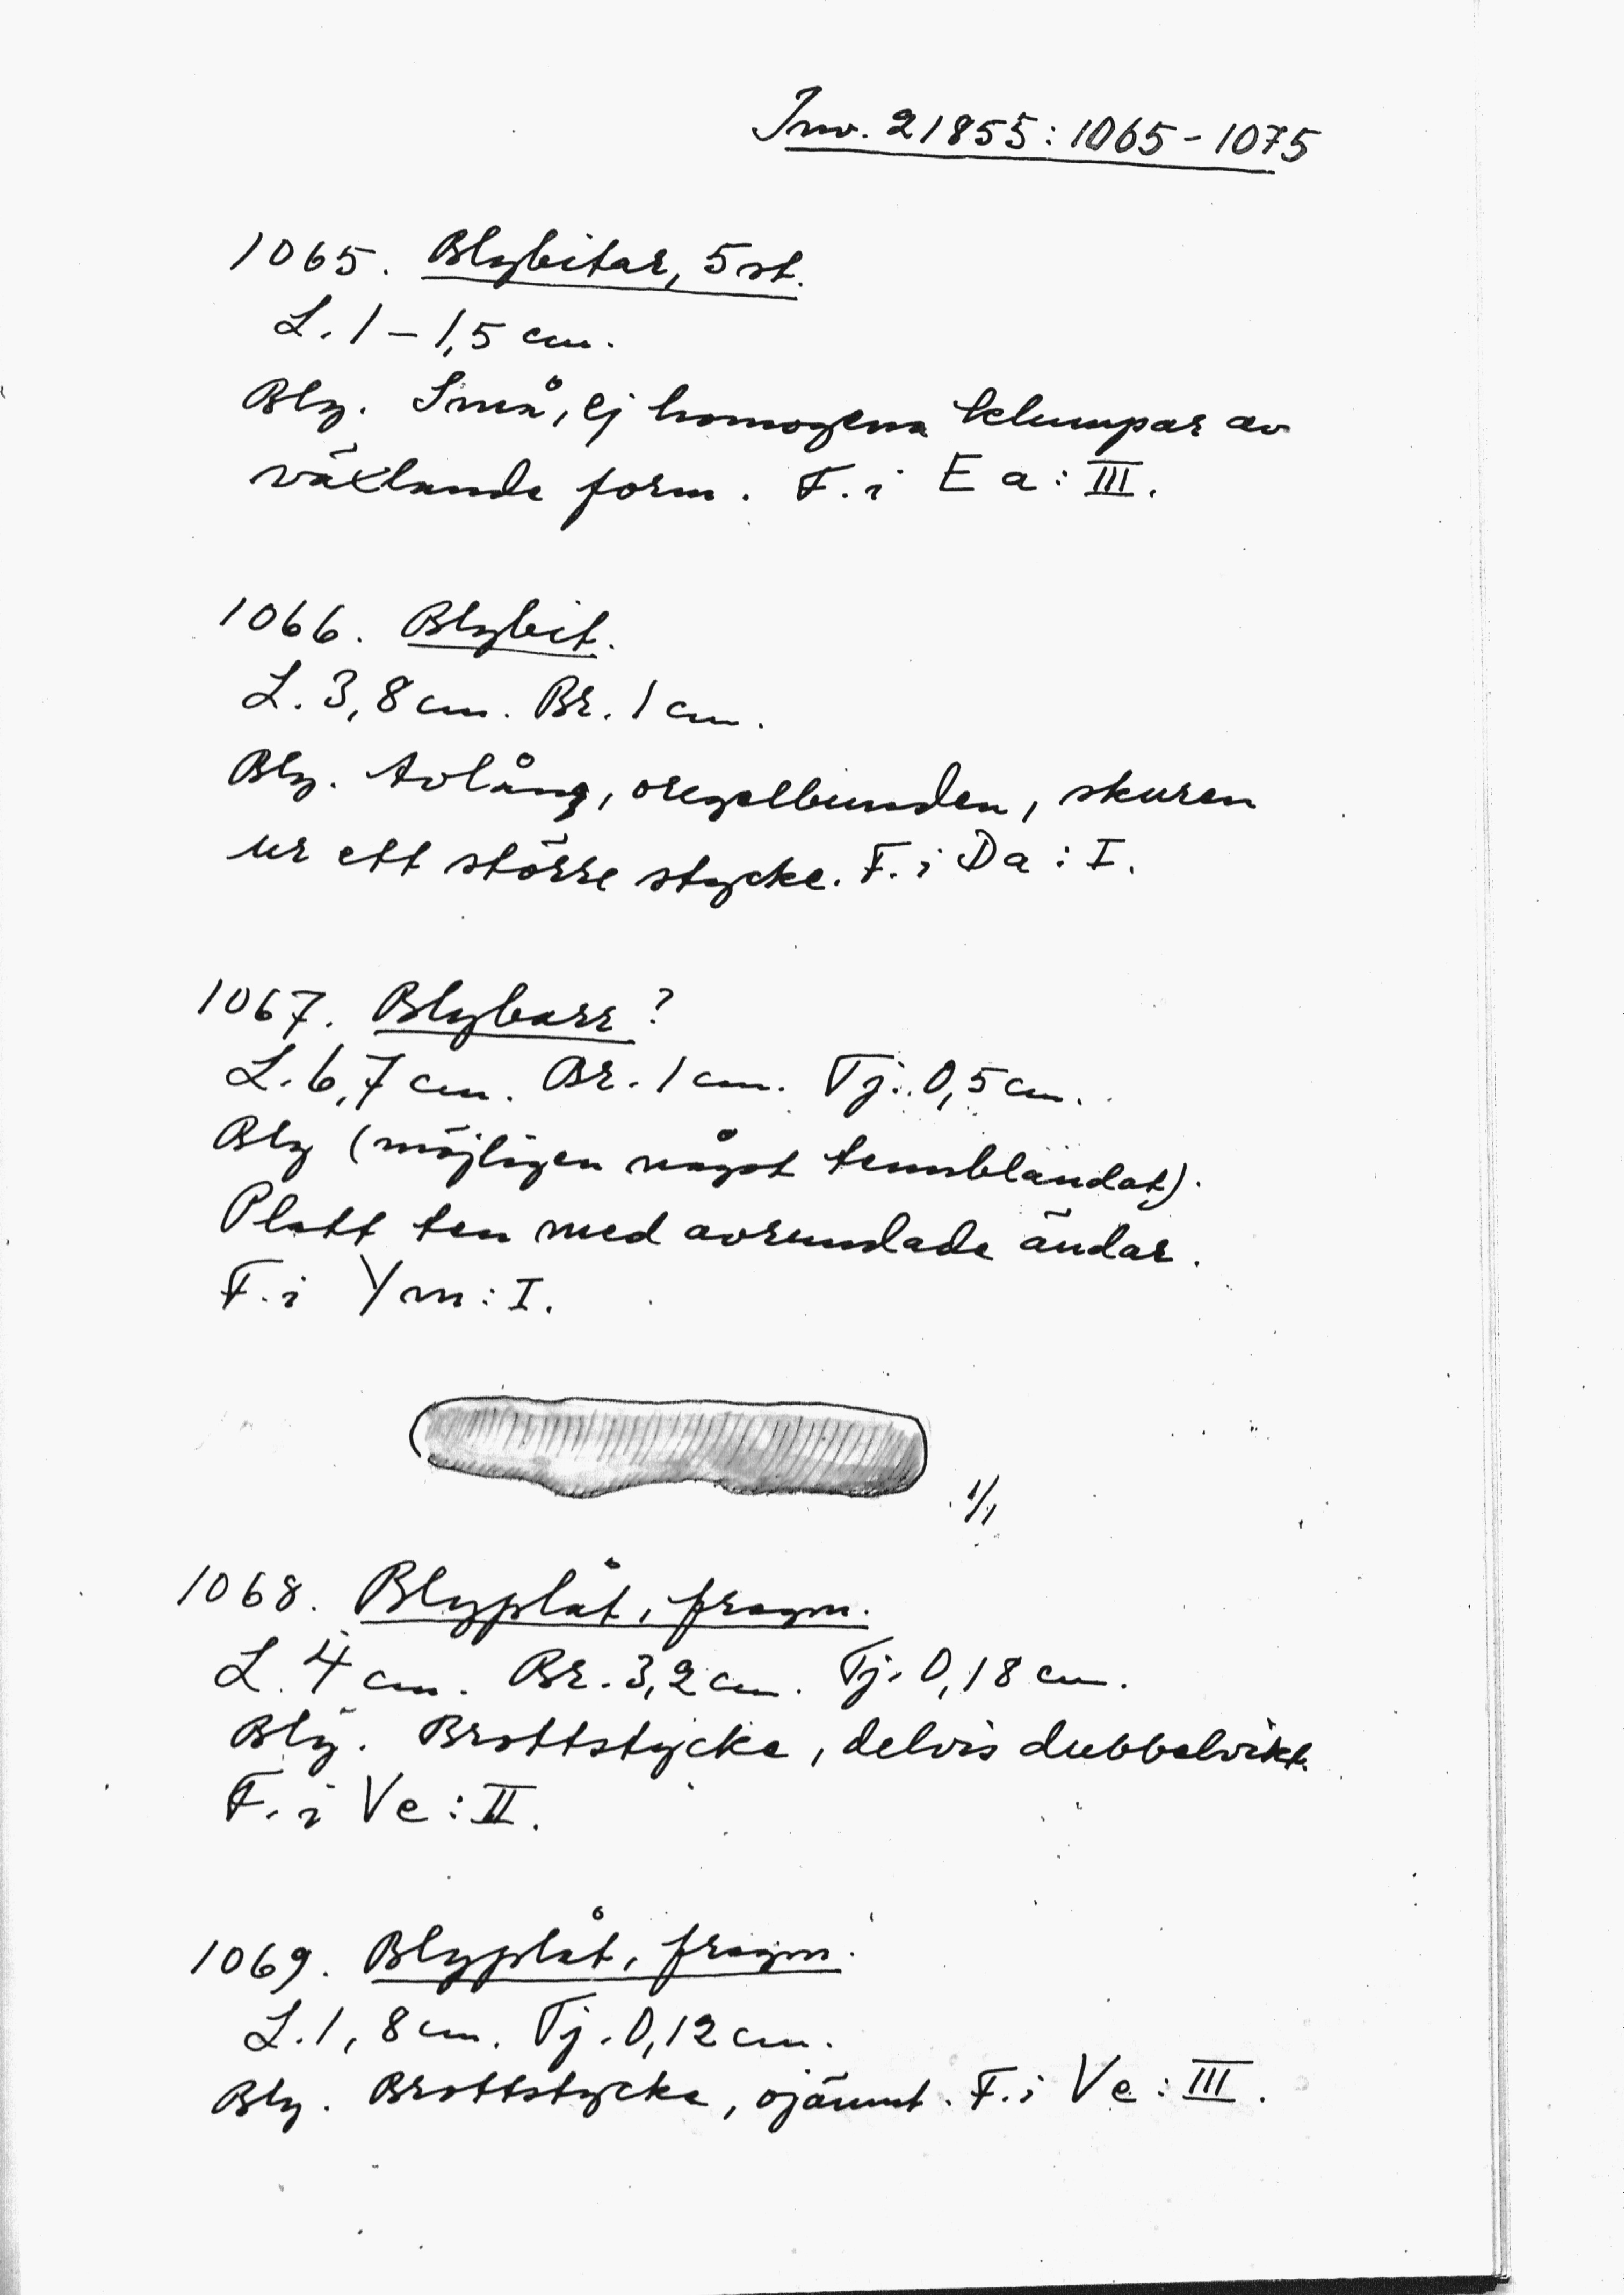 Inv. 21855:1065-1075
1065. Blybitar, 5 st.
L. 1 – 1,5 cm.
Bly. Små, ej homogena klumpar av
växlande form. F. i Ea: III.
1066. Blybit.
L. 3,8 cm. Br. 1 cm.
Bly. Avlång, oregelbunden, skuren
ur ett större stycke. F. i Da: I.
1067. Blybarr?
L. 6,7 cm. Br. 1 cm. Tj. 0,5 cm.
Bly (möjligen något tennbländat).
Platt ten med avrundade ändar.
F. i Ym: I.
1/1
1068. Blyplåt, fragm.
L. 4 cm. Br. 3,2 cm. Tj. 0,18 cm.
Bly. Brottstycke, delvis dubbelvikt.
F. i Ve: II.
1069. Blyplåt, fragm.
L. 1,8 cm. Tj. 0,12 cm.
Bly. Brottstycke, ojämnt. F. i Ve: III.